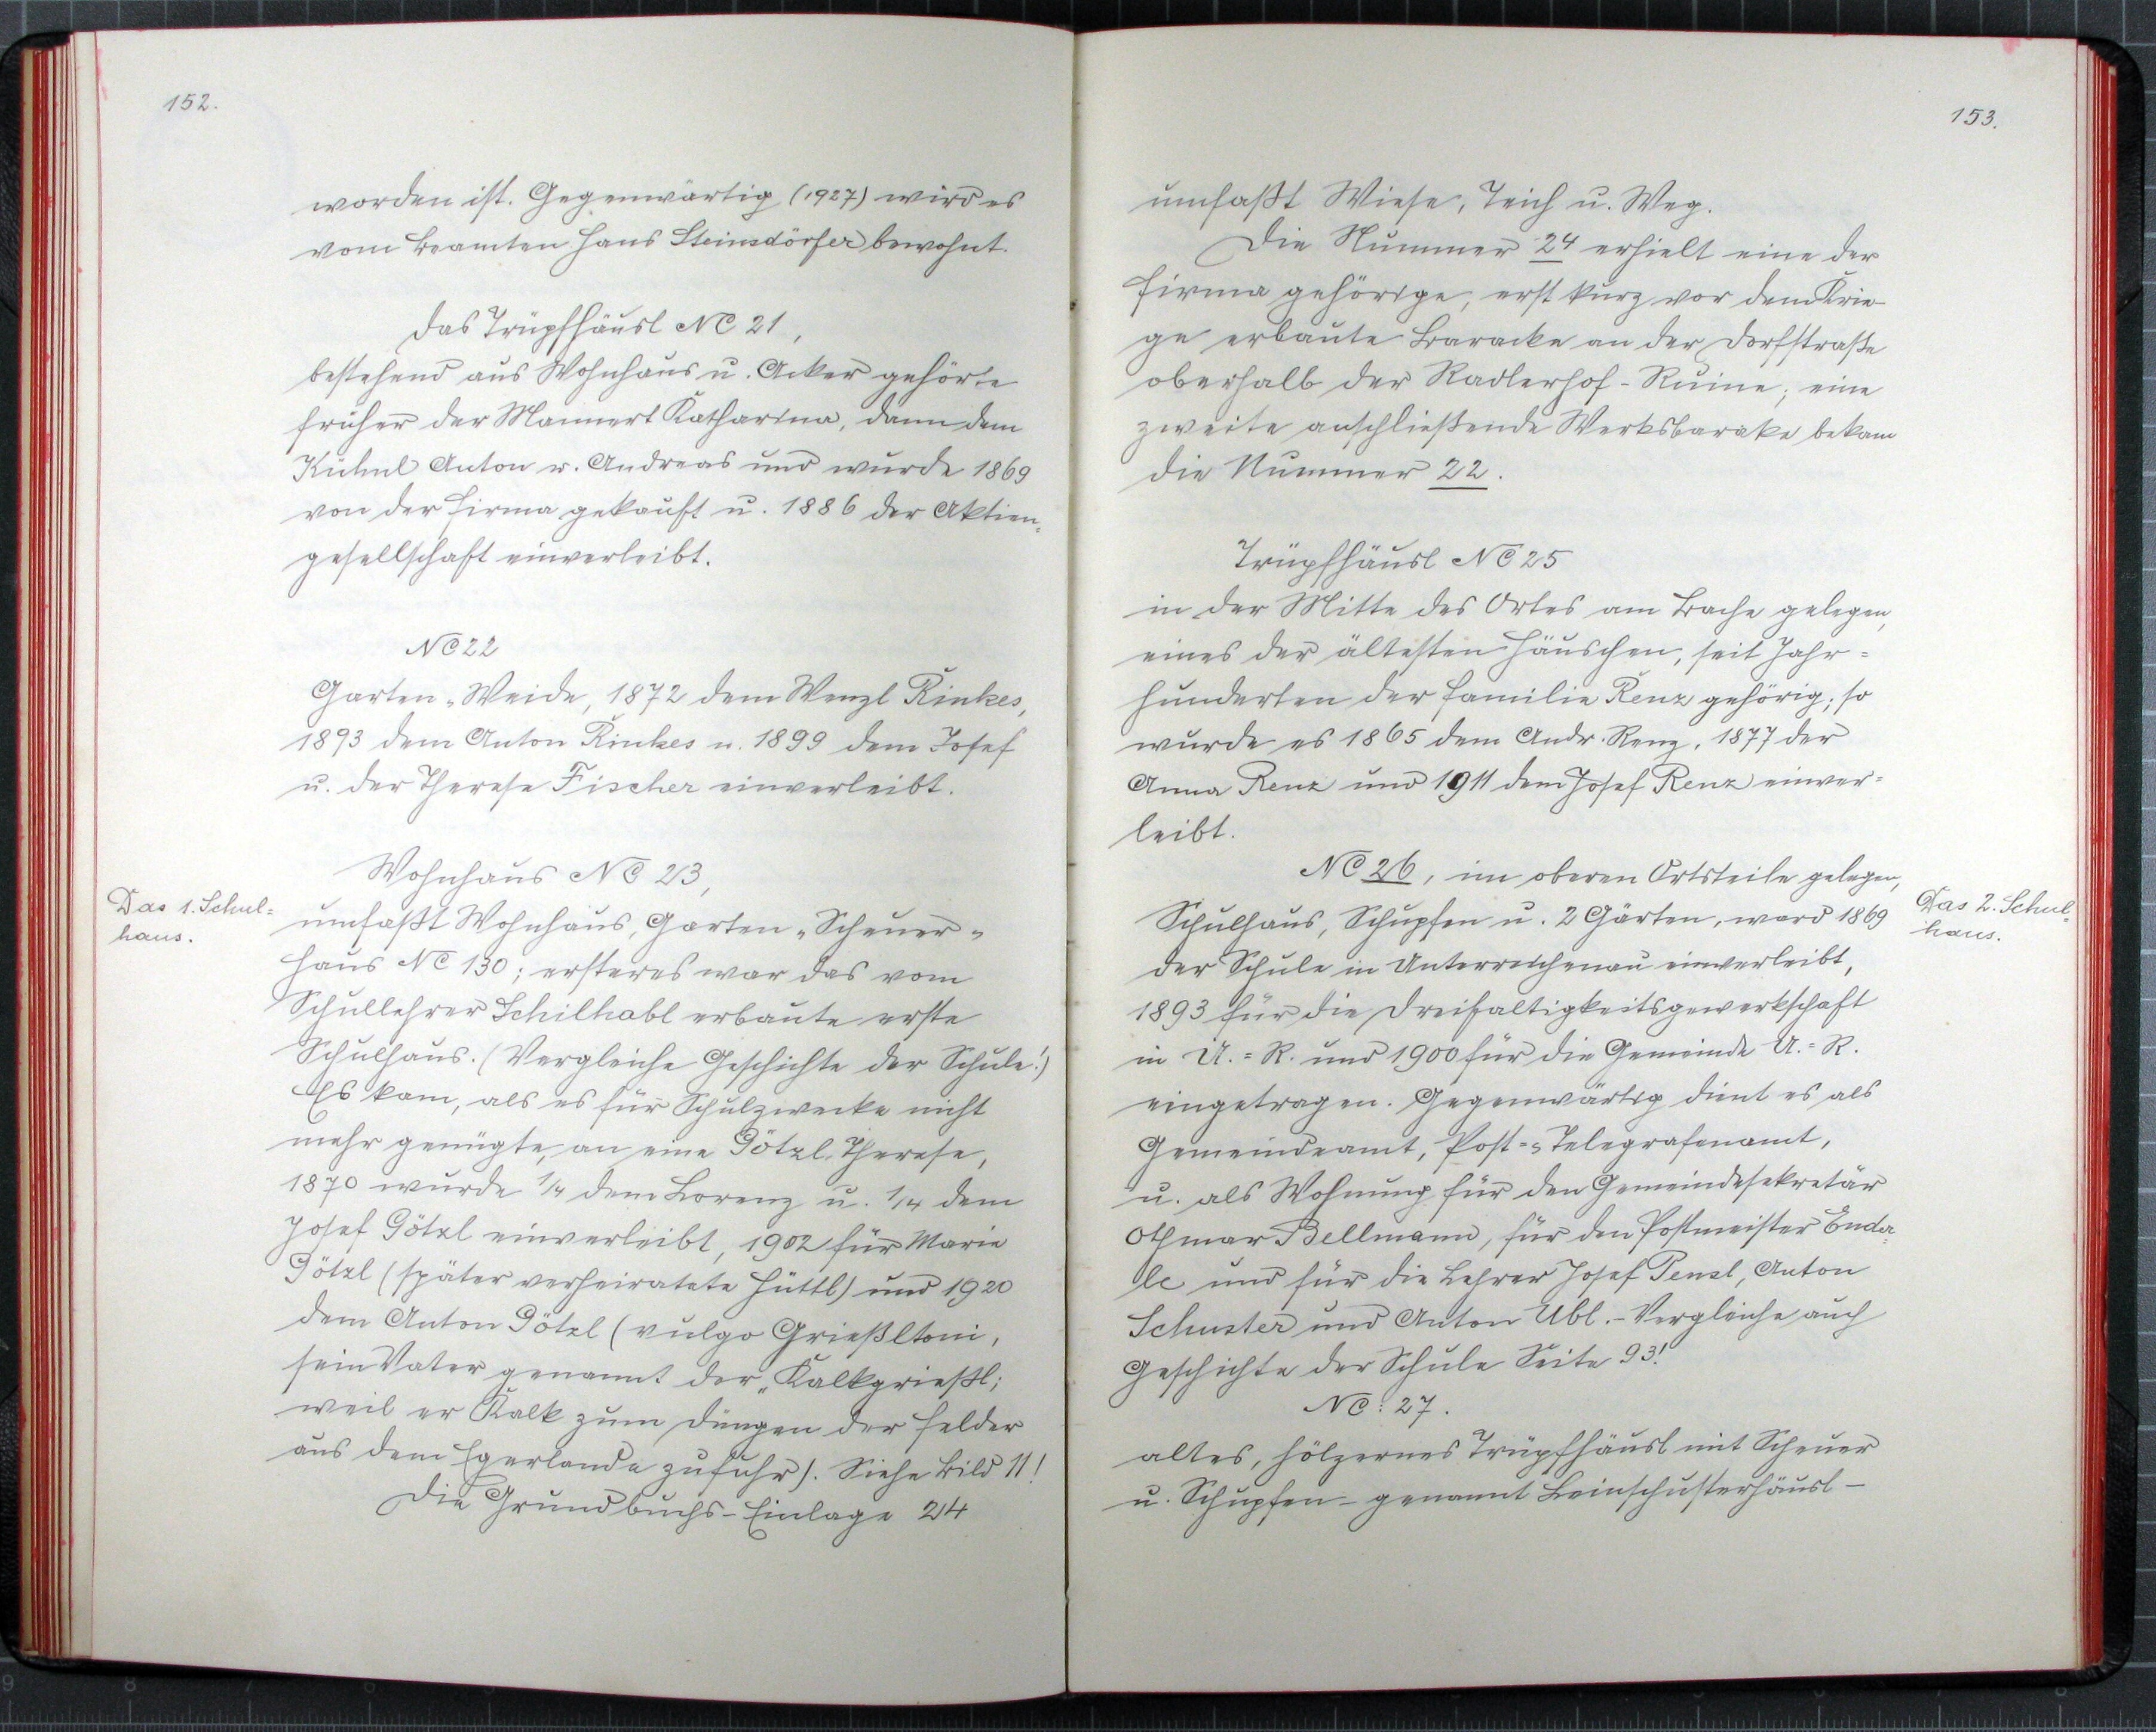 152.
worden ist. Gegenwärtig (1927) wird es
vom Beamten Hans Steinsdörfer bewohnt.
Das Trüpfhäusl NC 21,
bestehend aus Wohnhaus u. Acker gehörte
früher der Mannert Katharina, dann dem
Kühnl Anton v. Andreas und wurde 1869
von der Firma gekauft u. 1886 der Aktien-
gesellschaft einverleibt.
NC 22
Garten-Weide, 1872 dem Wenzl Rinkes,
1893 dem Anton Rinkes u. 1899 dem Josef
u. der Therese Fischer einverleibt.
Wohnhaus NC 23,
Das 1. Schul=
haus.
umfaßt Wohnhaus, Garten, Scheuer,
Haus NC 130; ersteres war das vom
Schullehrer Schilhabl erbaute erste
Schulhaus. (Vergleiche Geschichte der Schule!)
Es kam, als es für Schulzwecke nicht
mehr genügte, an eine Götzl Therese,
1870 wurde 1/4 dem Lorenz u. 1/4 dem
Josef Götzl einverleibt, 1902 für Marie
Götzl (später verheiratete Hüttl) und 1920
dem Anton Götzl (vulgo Grießltoni,
sein Vater genannt der „Kalkgrießl;
weil er Kalk zum Düngen der Felder
aus dem Egerlande zufuhr). Siehe Bild 11!
Die Grundbuchs-Einlage 24
153.
umfaßt Wiese, Teich u. Weg.
Die Nummer 24 erhielt eine der
Firma gehörige, erst kurz vor dem Krie-
ge erbaute Baracke an der Dorfstraße
oberhalb der Radlerhof-Ruine; eine
zweite anschließende Werksbarake bekam
die Nummer 22.
Trüpfhäusl NC 25
in der Mitte des Ortes am Bache gelegen,
eines der ältesten Häuschen, seit Jahr=
hunderten der Familie Renz gehörig; so
wurde es 1865 dem Andr. Renz, 1877 der
Anna Renz und 1911 dem Josef Renz einver=
leibt.
NC 26, im oberen Ortsteile gelegen,
Das 2. Schul=
haus.
Schulhaus, Schupfen u. 2 Gärten, ward 1869
der Schule in Unterreichenau einverleibt,
1893 für die Dreifaltigkeitsgewerkschaft
in U.=R. und 1900 für die Gemeinde U.=R.
eingetragen. Gegenwärtig dient es als
Gemeindeamt, Post=, Telegrafenamt,
u. als Wohnung für den Gemeindesekretär
Othmar Bellmann, für den Postmeister Ender=
le und für die Lehrer Josef Penzl, Anton
Schuster und Anton Ubl.- Vergleiche auch
Geschichte der Schule Seite 93!
NC: 27.
altes, hölzernes Trüpfhäusl mit Scheuer
u. Schupfen - genannt Beinschusterhäusl -